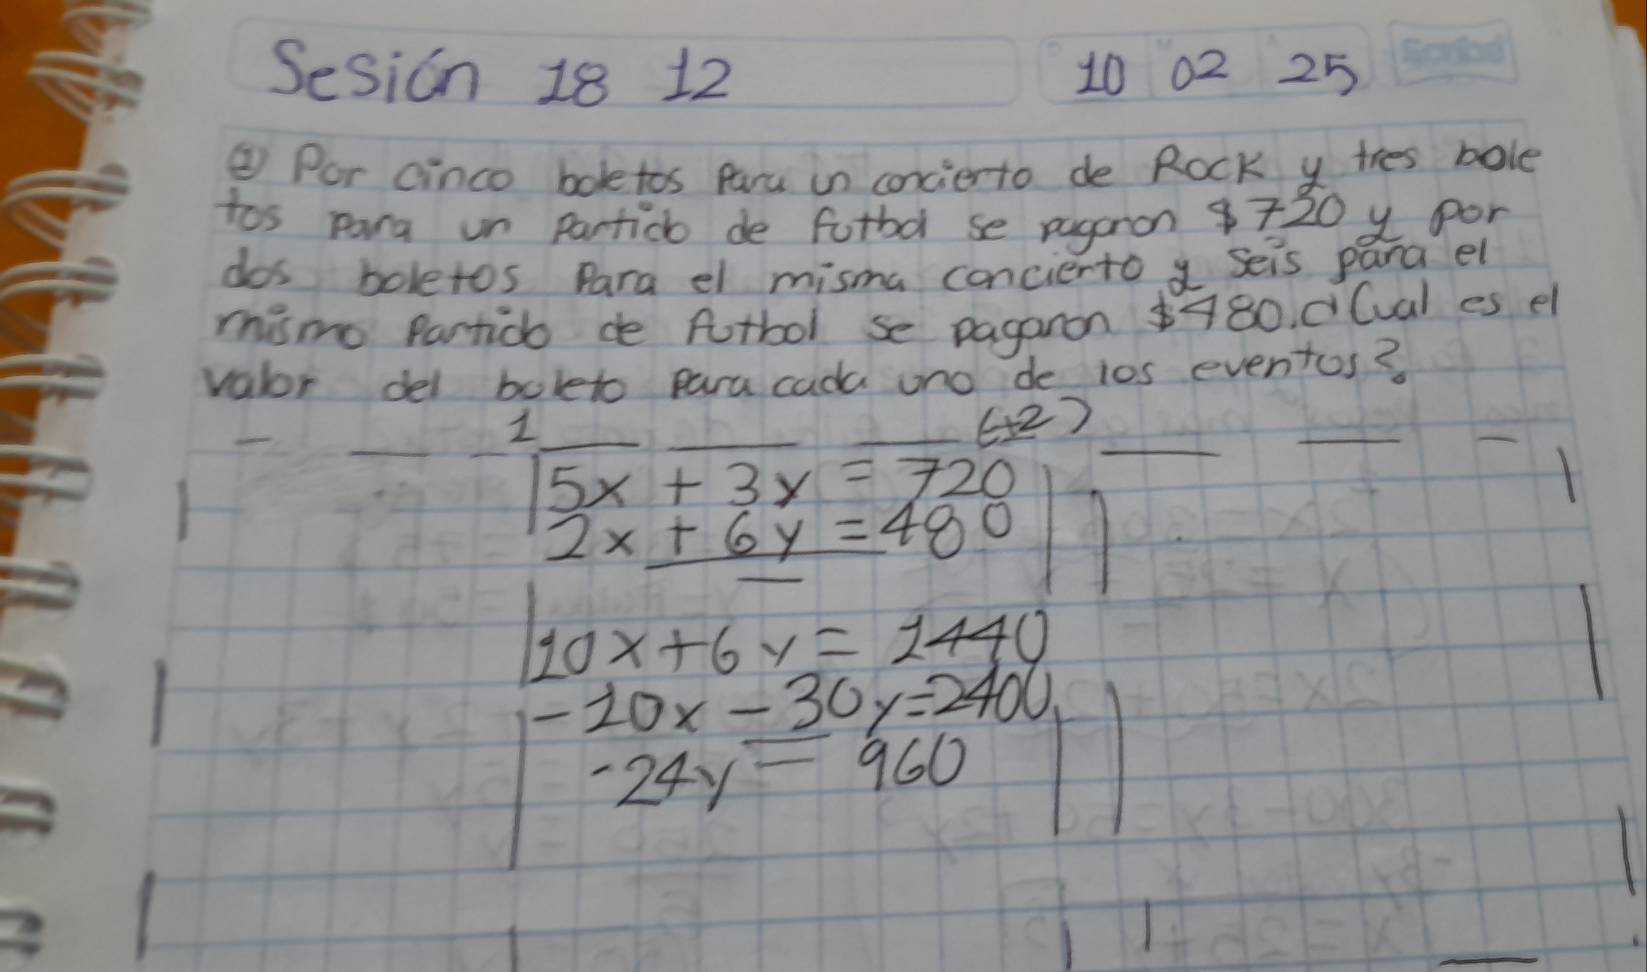 Sesión 18 12
10 02 25
① Por cinco boletos para un concierto de Rock y tres bole
tos para un partido de futbol se pagaron $720 y por
dos boletos para el misma concierto y seis para el
mismo partido de futbol se pagaron $480. ¿Cual es el
valor del boleto para cada uno de los eventos?
1 (+2)
5x + 3y = 720
2x + 6y = 480
10x + 6y = 1440
-10x - 30y = 2400
-24y = 960